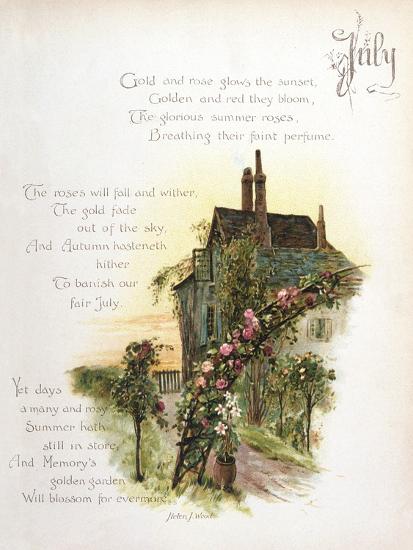 July
Gold and rose glows the sunset,
Golden and red they bloom,
The glorious summer roses,
Breathing their faint perfume.
The roses will fall and wither,
The gold fade
out of the sky,
And Autumn hasteneth
hither
To banish our
fair July.
Yet days
a many and rosy
Summer hath
still in store,
And Memory's
golden garden
Will blossom for evermore.
Helen J. Wood